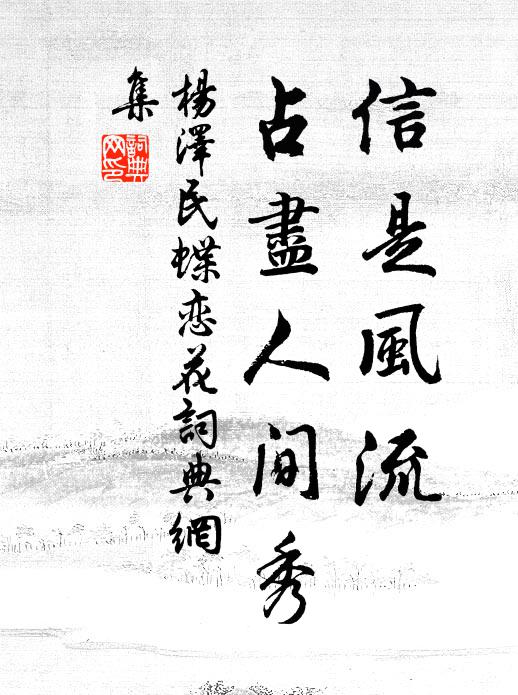 信是風流
占盡人間秀
楊澤民蝶恋花詞典網
集
詞典
网印